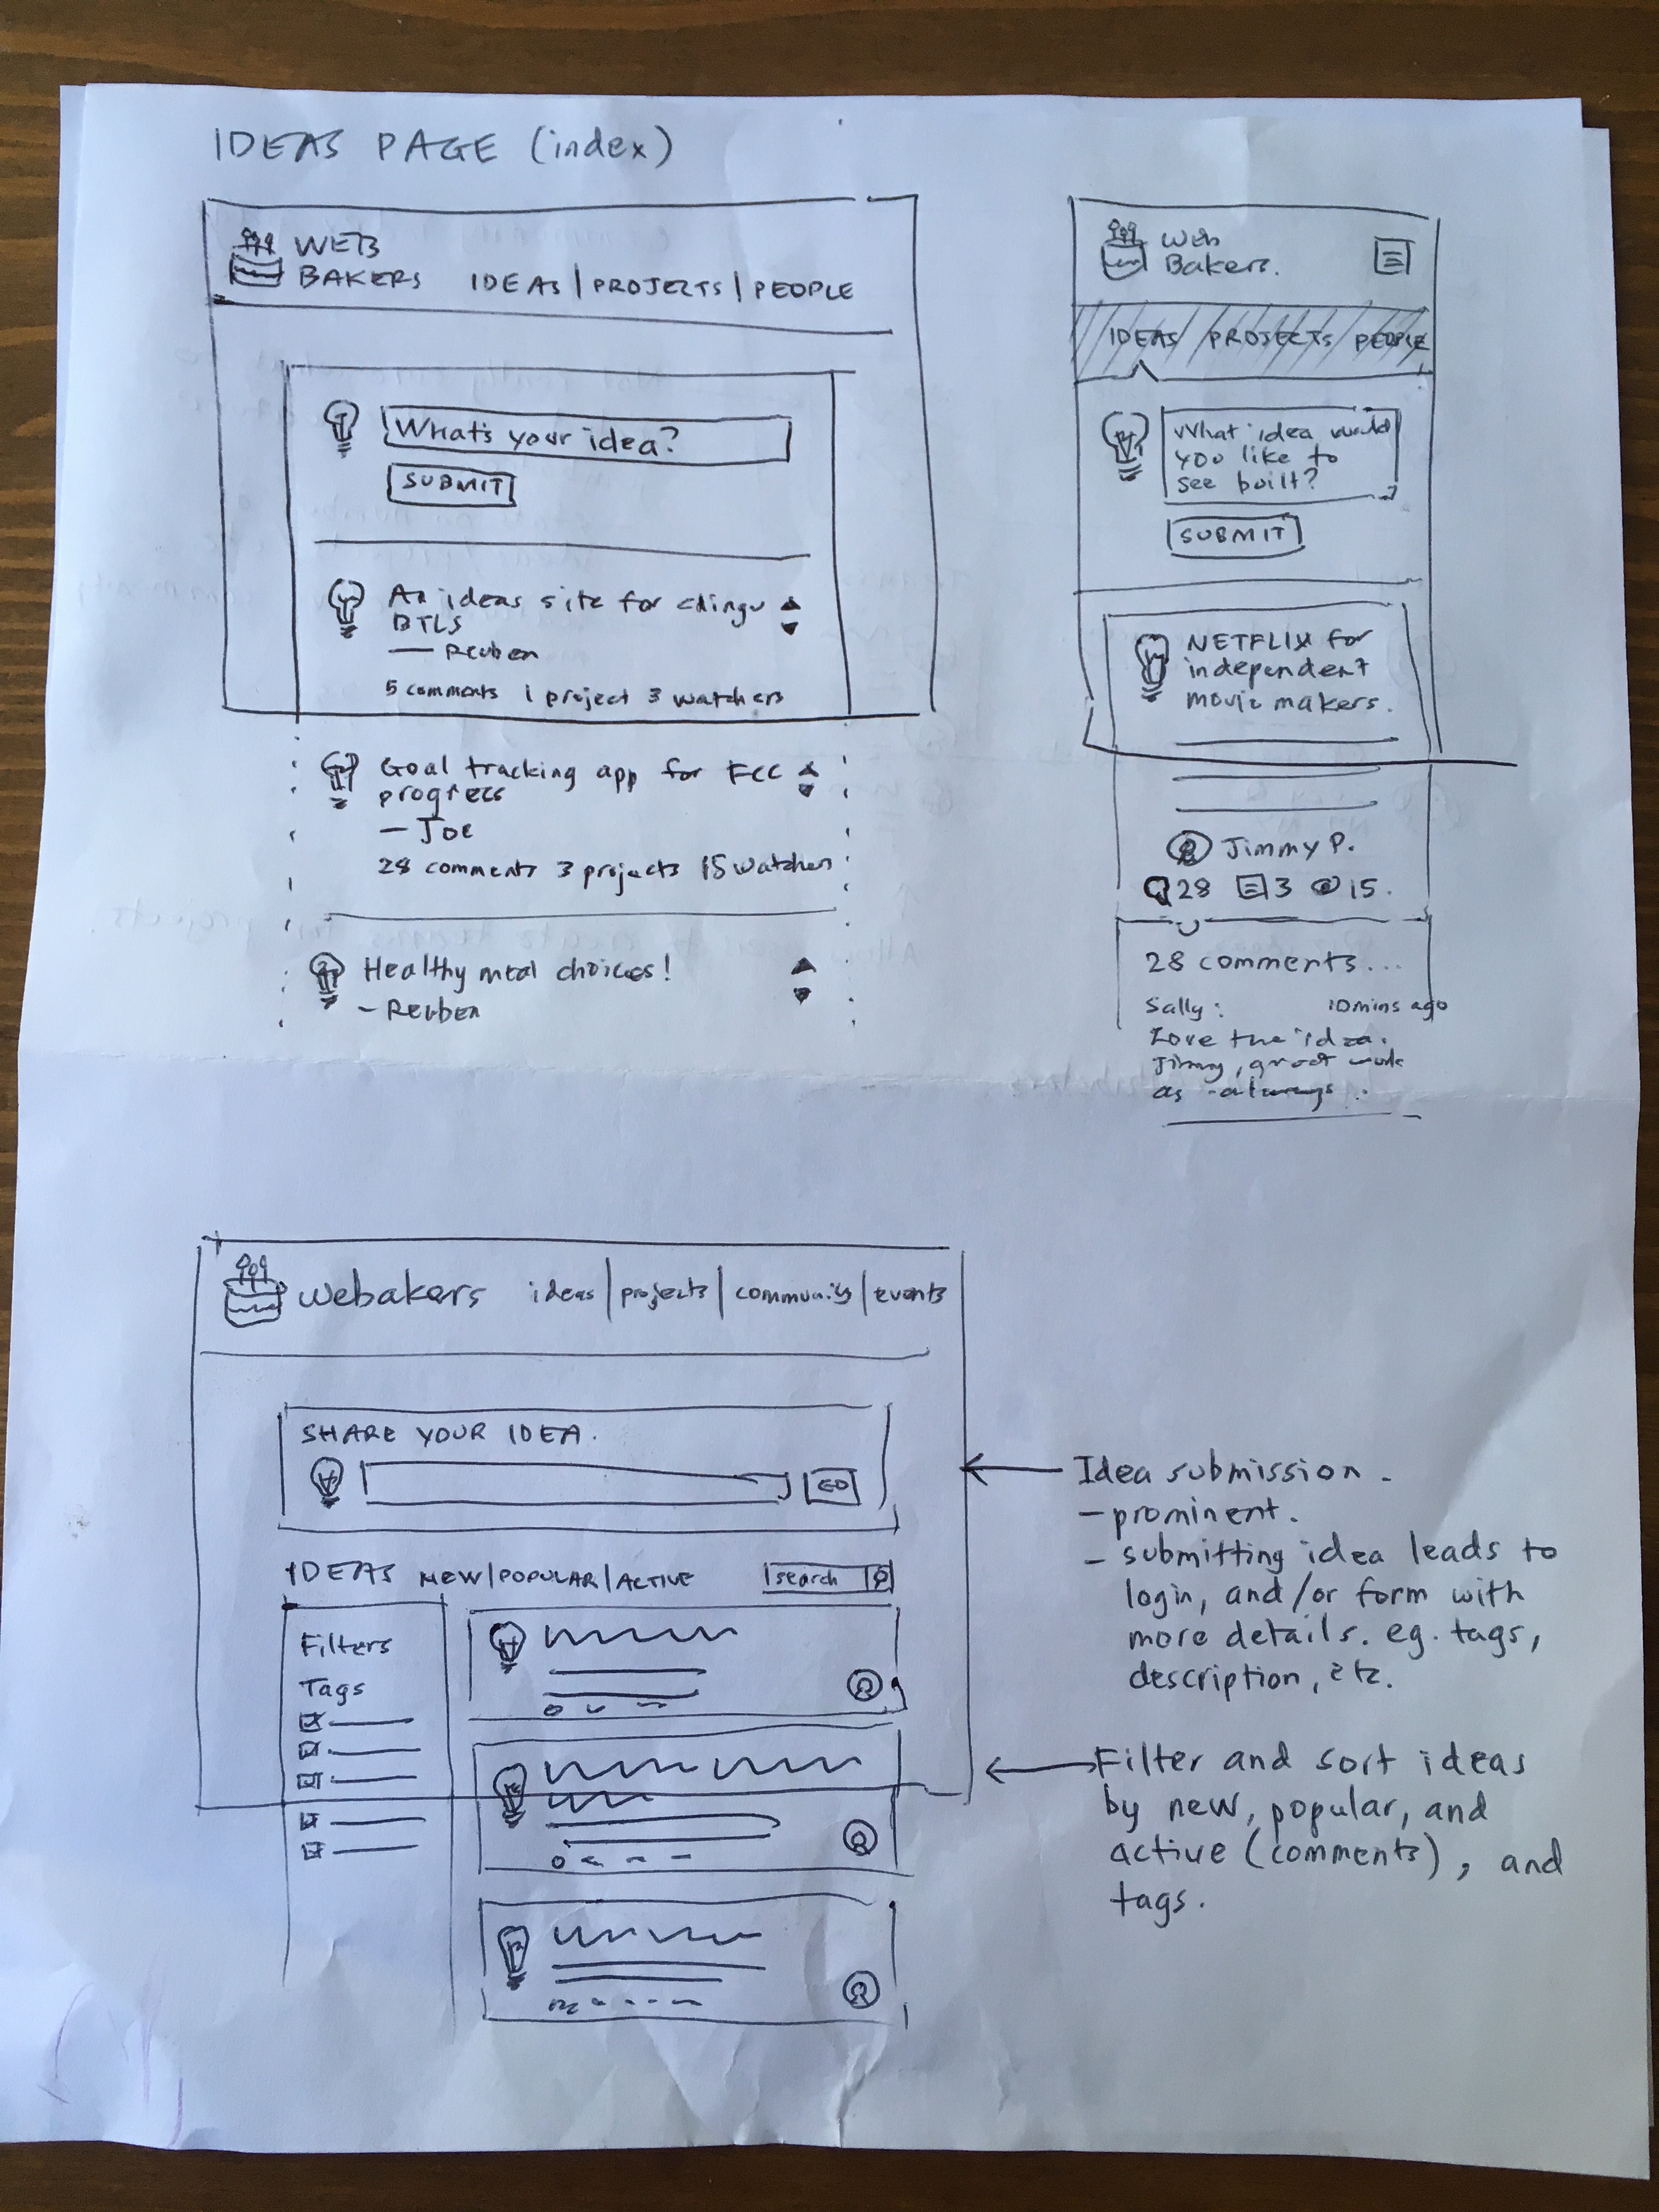 IDEAS PAGE (index)
WEB
BAKERS IDEAS | PROJECTS | PEOPLE
What's your idea?
SUBMIT
An ideas site for
BTLS
— Reuben
5 comments 1 project 3 watchers
Goal tracking app for FCC
progress
— Joe
28 comments 3 projects 15 watchers
Healthy meal choices!
- Reuben
Web
Bakers.
IDEAS PROJECTS PEOPLE
What idea would
you like to
see built?
SUBMIT
NETFLIX for
independent
movie makers.
Jimmy P.
28 3 15.
28 comments...
Sally: 10mins ago
Love the idea.
Jimmy, great work
as always..
webakers ideas | projects | community | events
SHARE YOUR IDEA.
GO
IDEAS NEW/POPULAR/ACTIVE search
Filters
Tags
Idea submission.
- prominent.
- submitting idea leads to
login, and/or form with
more details. eg. tags,
description, etc.
Filter and sort ideas
by new, popular, and
active (comments), and
tags.